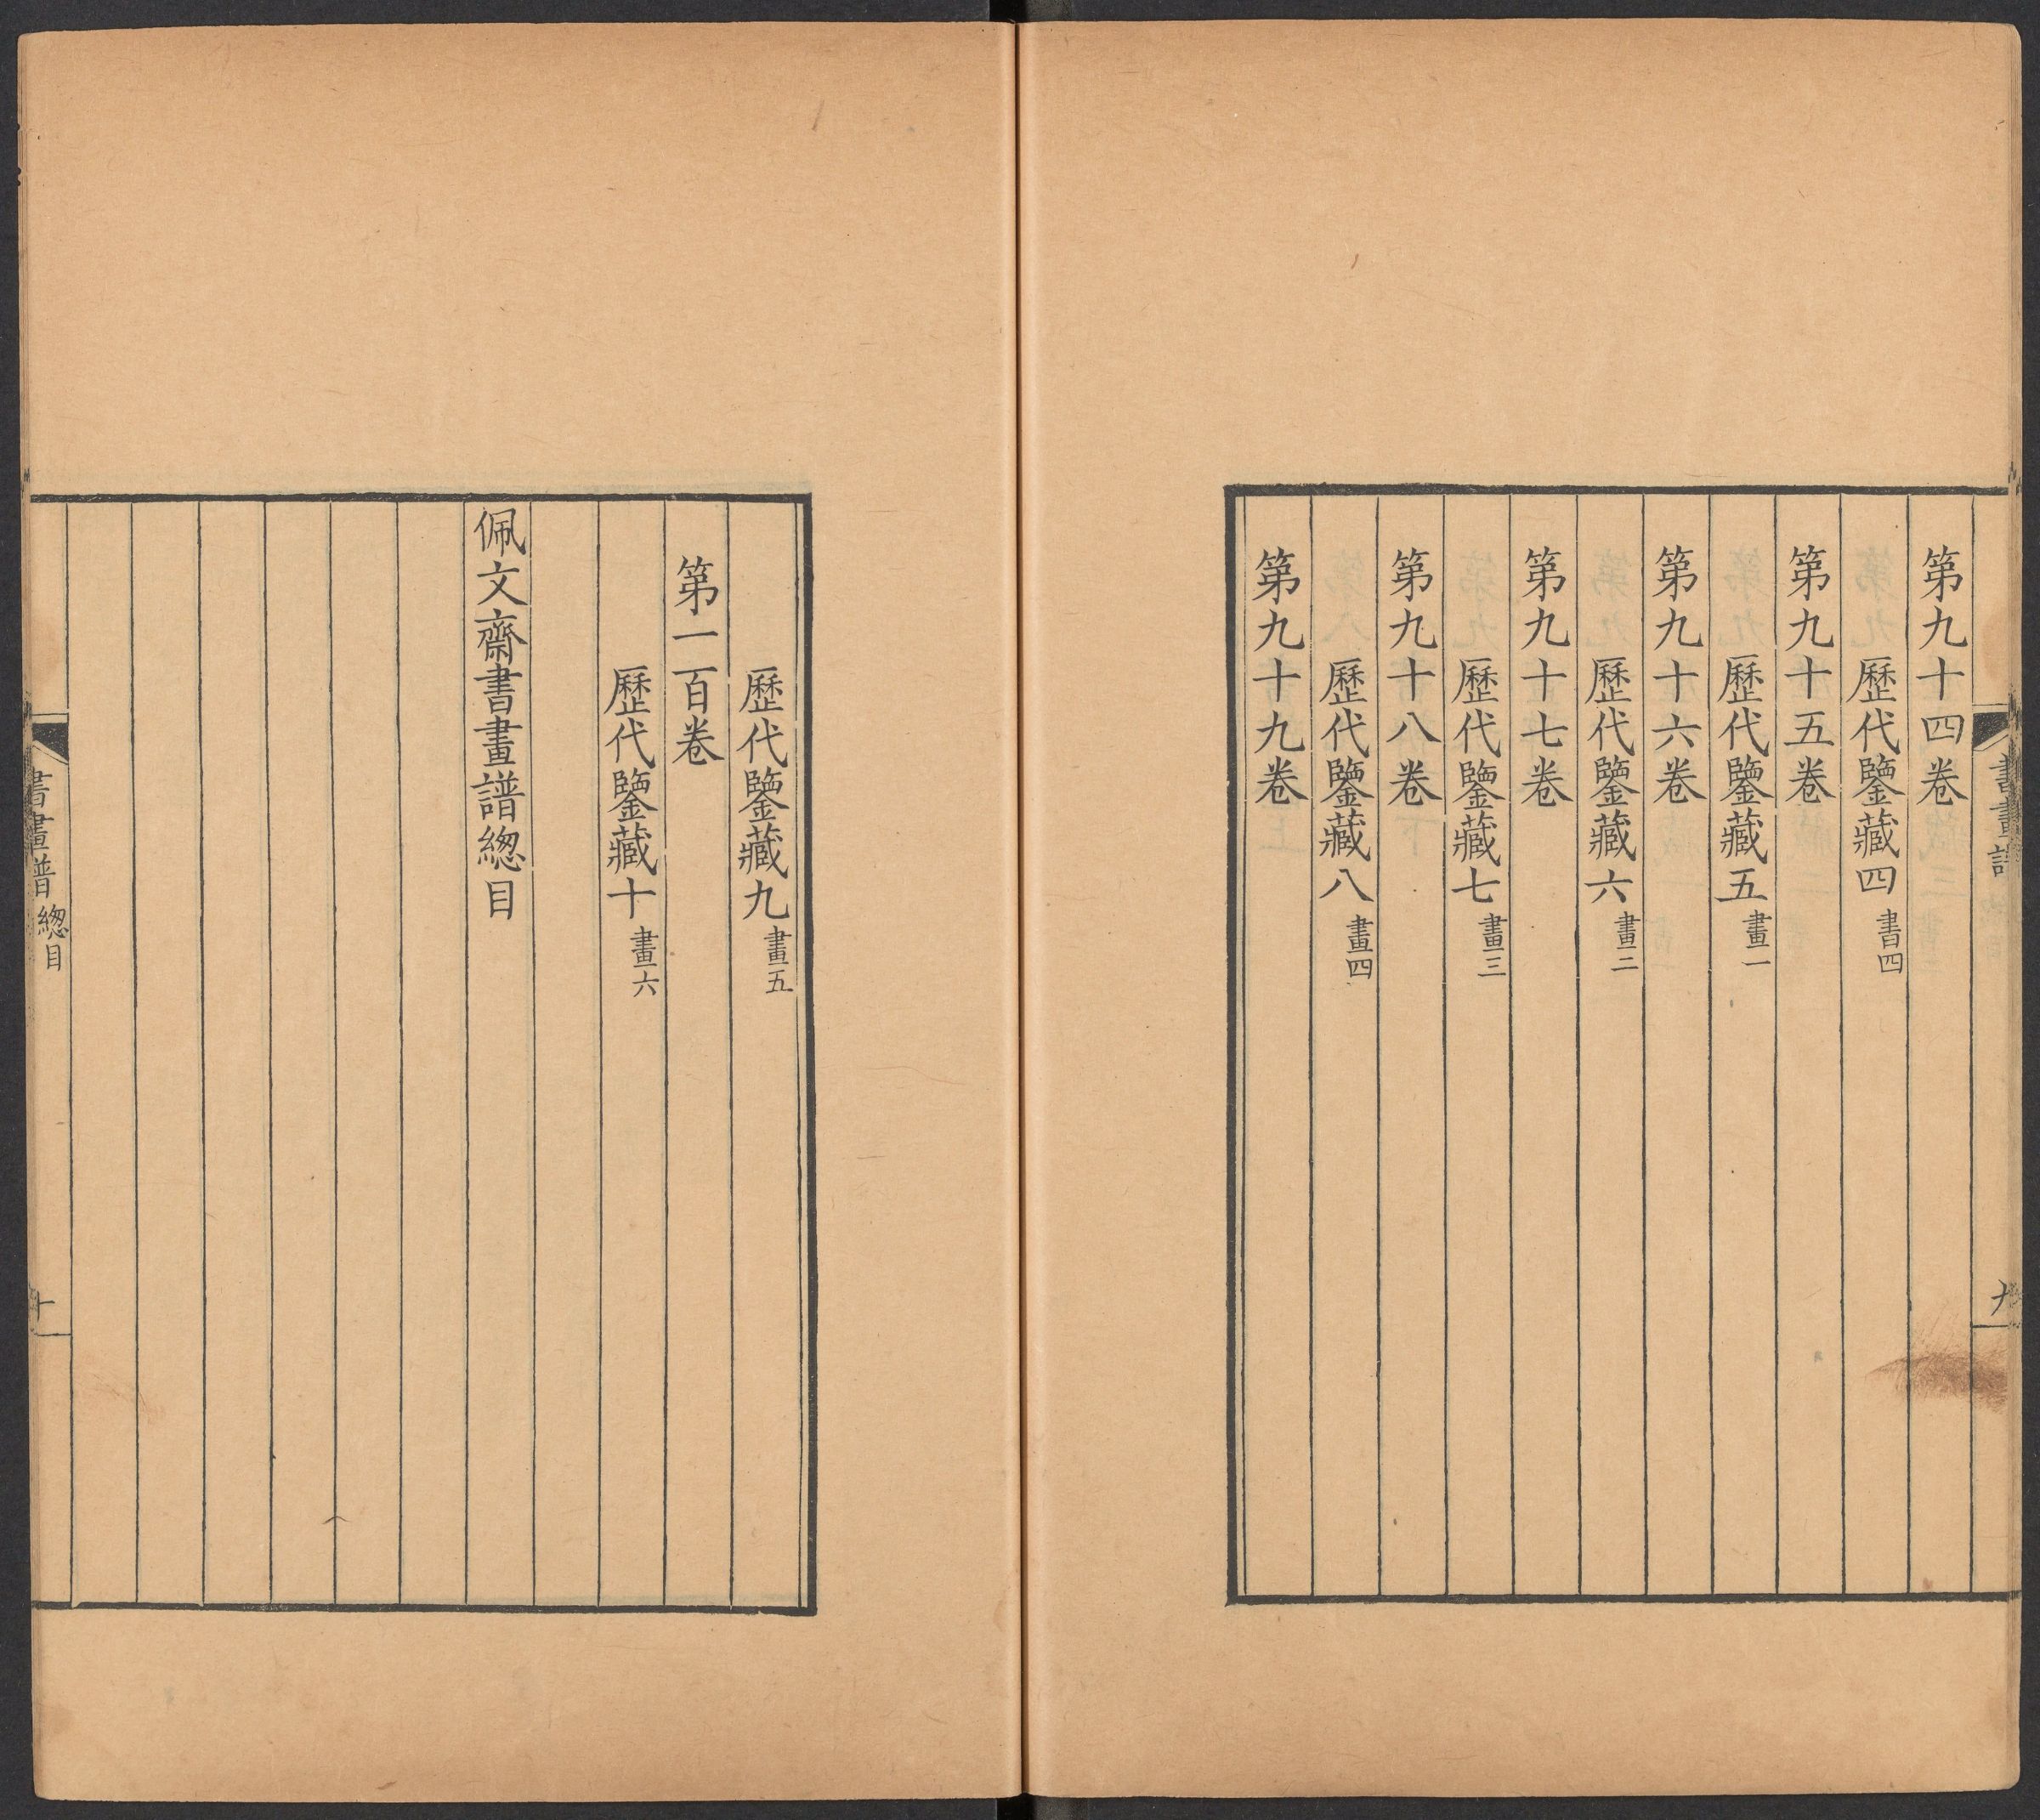 第九十四卷
歷代鑒藏四 書四
第九十五卷
歷代鑒藏五 畫一
第九十六卷
歷代鑒藏六 畫二
第九十七卷
歷代鑒藏七 畫三
第九十八卷
歷代鑒藏八 畫四
第九十九卷
歷代鑒藏九 畫五
第一百卷
歷代鑒藏十 畫六
佩文齋書畫譜緫目
書畫譜
九
書畫譜 緫目
十